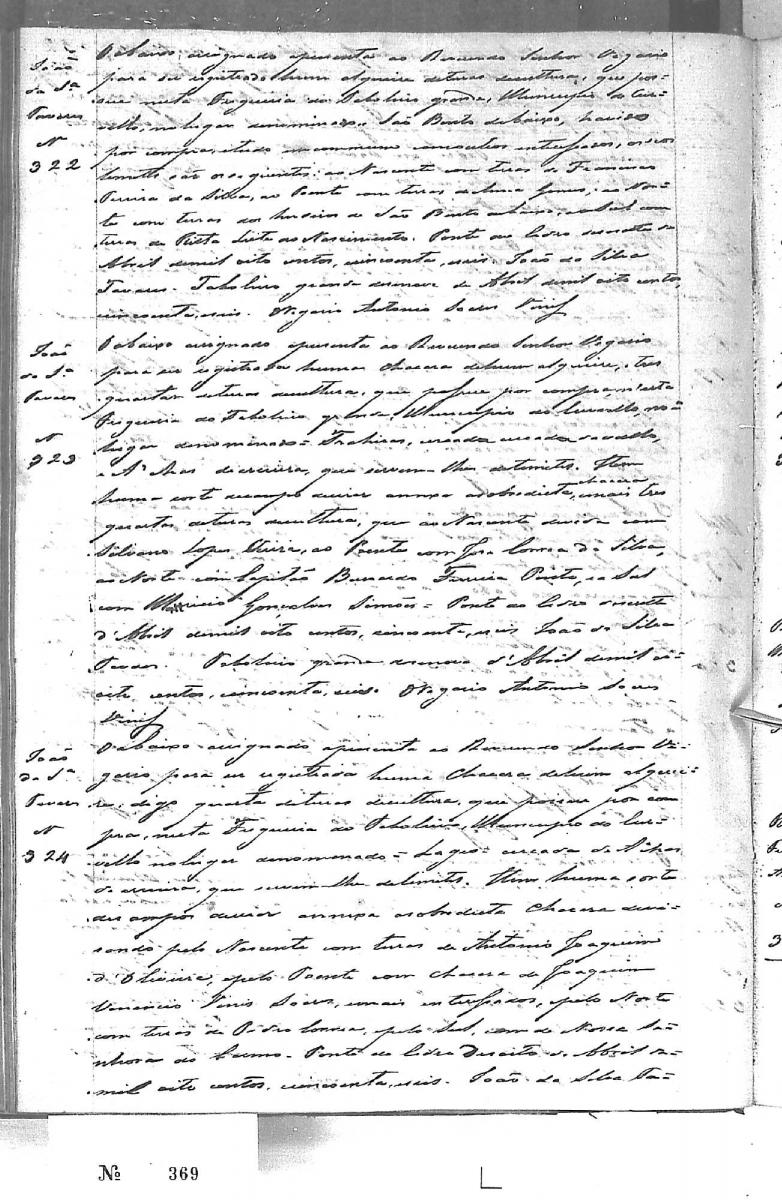 João
da Sª
Tavares
N
322
O abaixo assignado apresenta ao Reverendo Senhor Vigario
para ser registrado hum alqueire de terras de cultura, que pos-
sue nesta Freguesia do Taboleiro grande, Municipio do Cur-
vello, no lugar denominado São Bento debaixo, havido
por compra, e tudo em commum com outros interessados, os seos
limittes são os seguintes: ao Nascente com terras de Francisco
Pereira da Silva, ao Poente com terras de Gomes; ao Nor-
te com terras dos herdeiros de São Bento abaixo, e ao Sul com
terras de Leite do Nascimento. Ponte de Cedro desoito de
Abril de mil oito centos, cincoenta, e seis. João da Silva
Tavares. Taboleiro grande desenove de Abril de mil oito centos,
cincoenta, e seis. O Vigario Antonio Soares
João
da Sª
Tavares
N
323
O abaixo assignado apresenta ao Reverendo Senhor Vigario
para ser registrada huma chacara de hum alqueire, e tres
quartas de terras de cultura, que possue por compra, n'esta
Freguesia do Taboleiro grande Municipio do Curvello, no
lugar denominado = Trahiras, cercada de vallo,
e Achas de aroeira, que servem-lhe de limites. Item
huma sorte de campo de criar annexa a sobredicta chacara, e mais tres
quartas de terras de cultura, que ao Nascente devisa com
Silvano Lopes Vieira, ao Poente com José Correa da Silva,
ao Norte com Capitão Bernardo Ferreira Pinto, e ao Sul
com Gonçalves Simões = Ponte do Cedro desoito
d'Abril de mil oito centos, cincoenta, e seis João da Silva
Tavares. Taboleiro grande desenove d'Abril de mil oi-
to centos, cincoenta, e seis. O Vigario Antonio Soares
João
da Sª
Tavares
N
324
O abaixo assignado apresenta ao Reverendo Senhor Vi-
gario para ser registrada huma Chacara de hum alquei-
re, digo quarta de terras de cultura, que possue por com
pra, nesta Freguesia do Taboleiro, Municipio do Cur-
vello no lugar denomenado = Lages = cercada de Achas
de aroeira, que servem-lhe de limites. Item huma sorte
de campos de criar annexa a sobredicta Chacara devi-
sando pelo Nascente com terras de Antonio Joaquim
d'Oliveira, e pelo Poente com chacara de Joaquim
Venancio Soares, e mais interessados, e pelo Norte
com terras de Pedro Correa, e pelo Sul, com de Nossa Se-
nhora do Carmo. Ponte do Cedro Desoito de Abril de
mil oito centos, cincoenta, e seis. João da Silva Ta-
Nº 369